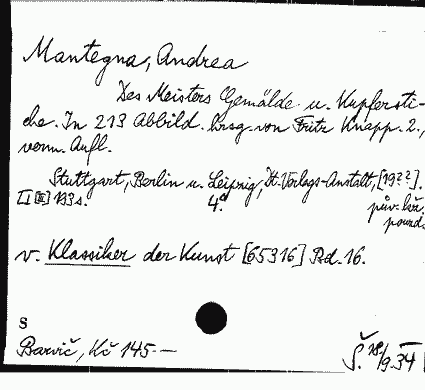 Mantegna, Andrea
Des Meisters Gemälde u. Kupfersti-
che. In 213 Abbild. hrsg. von Fritz Knapp. 2.,
verm. Aufl.
Stuttgart, Berlin u. Leipzig, Dt. Verlags-Anstalt, [19??].
[LIII] 193 s. 4° pův. kř.
pound.
v. Klassiker der Kunst [65316] Bd. 16.
S
Barvič, Kč 145.—
Š. 18/9.34